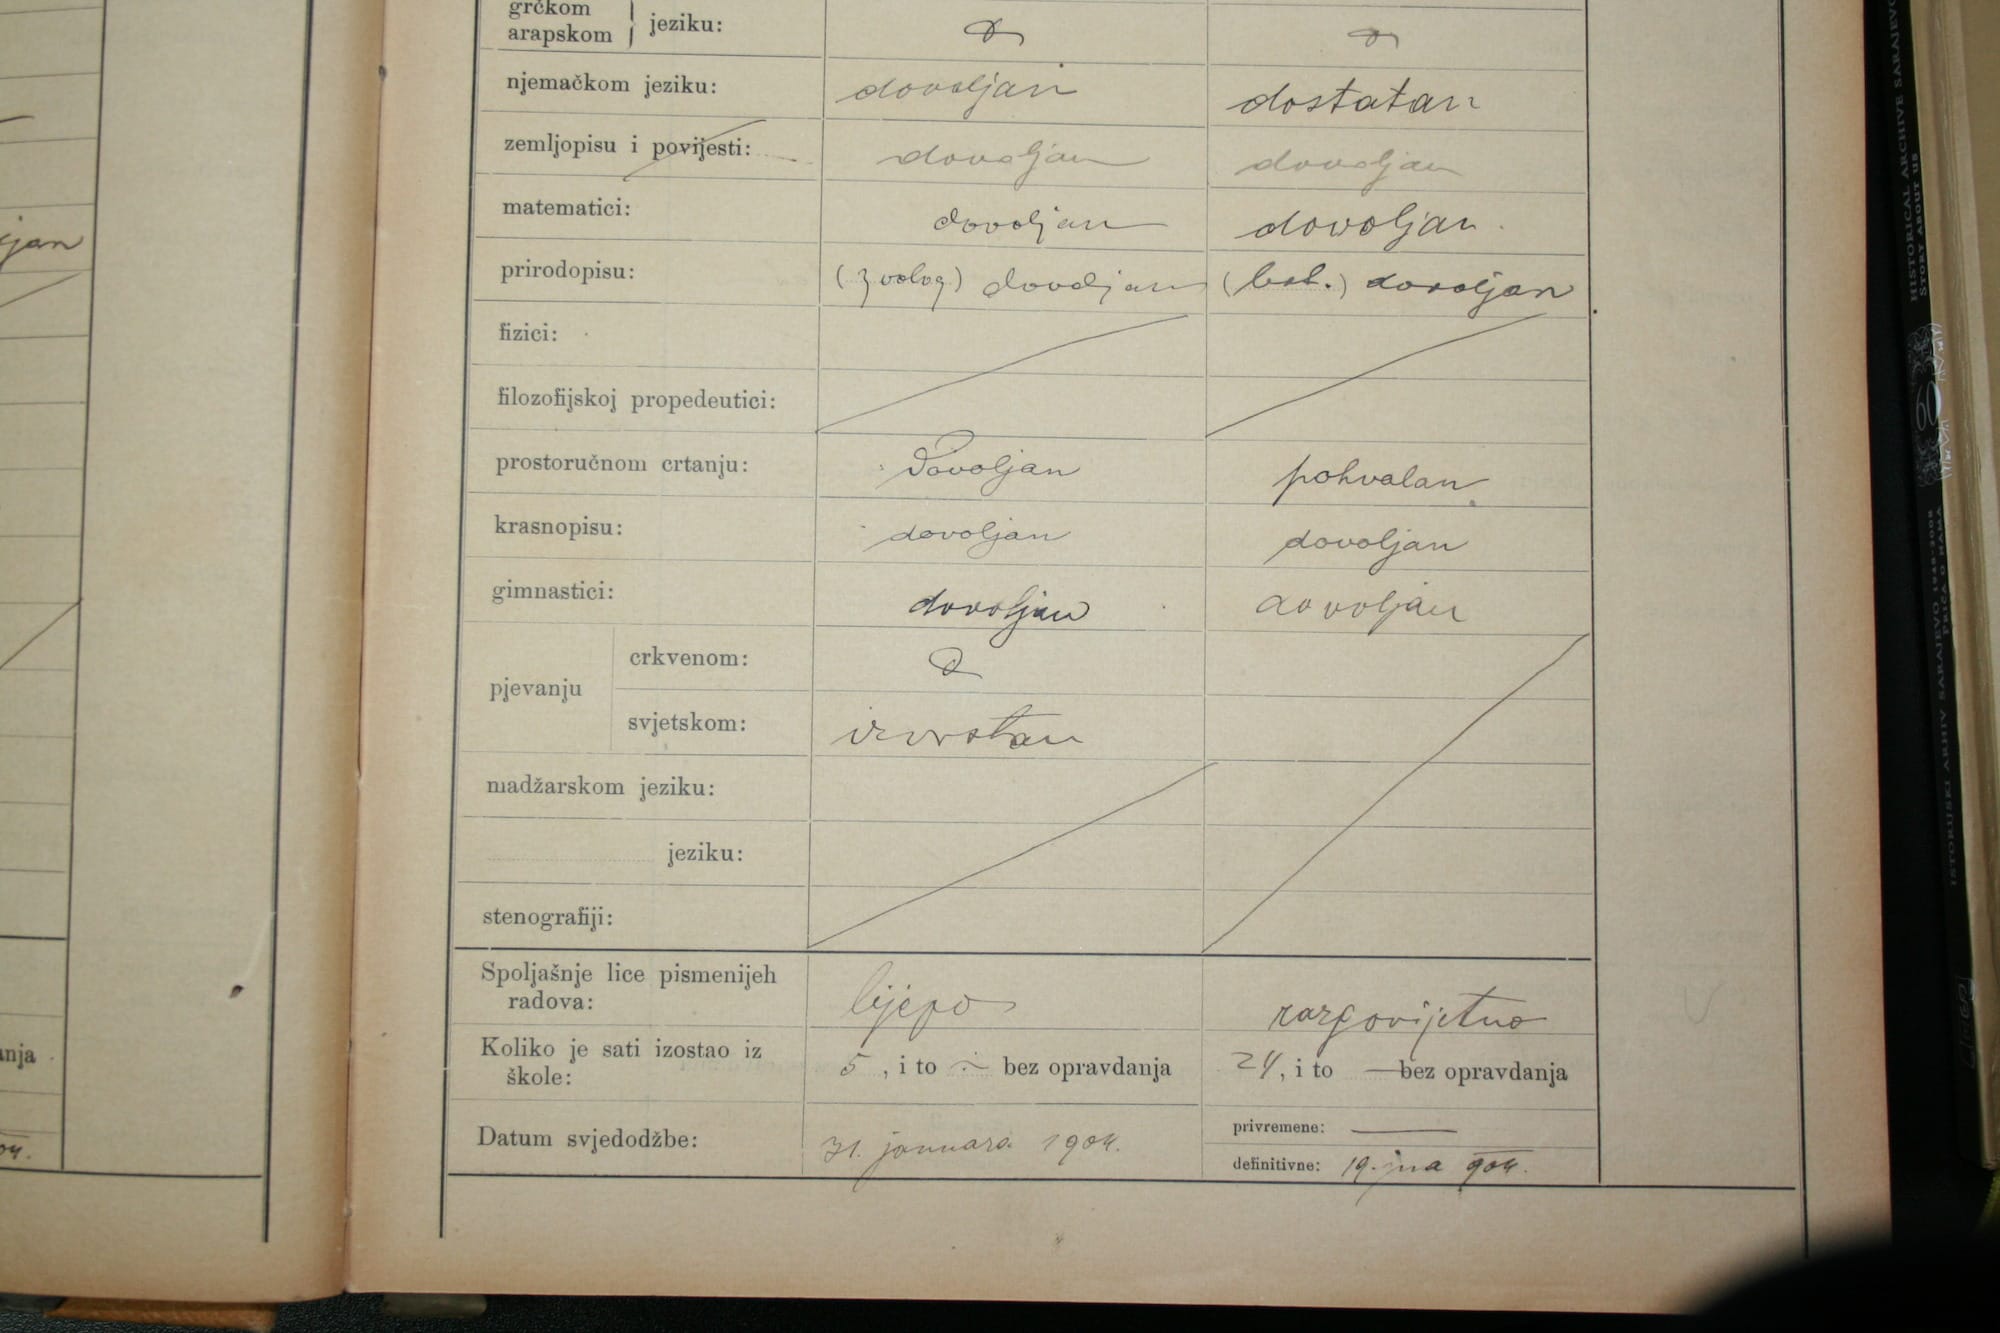 grčkom
arapskom } jeziku:
njemačkom jeziku: dovoljan dostatan
zemljopisu i povijesti: dovoljan dovoljan
matematici: dovoljan dovoljan
prirodopisu: (zoolog) dovoljan (bot.) dovoljan
fizici:
filozofijskoj propedeutici:
prostoručnom crtanju: Dovoljan pohvalan
krasnopisu: dovoljan dovoljan
gimnastici: dovoljan dovoljan
pjevanju
crkvenom:
svjetskom: izvrstan
madžarskom jeziku:
jeziku:
stenografiji:
Spoljašnje lice pismenijeh
radova: lijepo razgovijetno
Koliko je sati izostao iz
škole: 5, i to bez opravdanja 24, i to — bez opravdanja
Datum svjedodžbe: 31. januara 1904. privremene: —
definitivne: 19. 904.
jan
anja
04.
HISTORICAL ARCHIVE SARAJEVO
STORY ABOUT US
ISTORIJSKI ARHIV SARAJEVO 1948-2008
PRIČA O NAMA